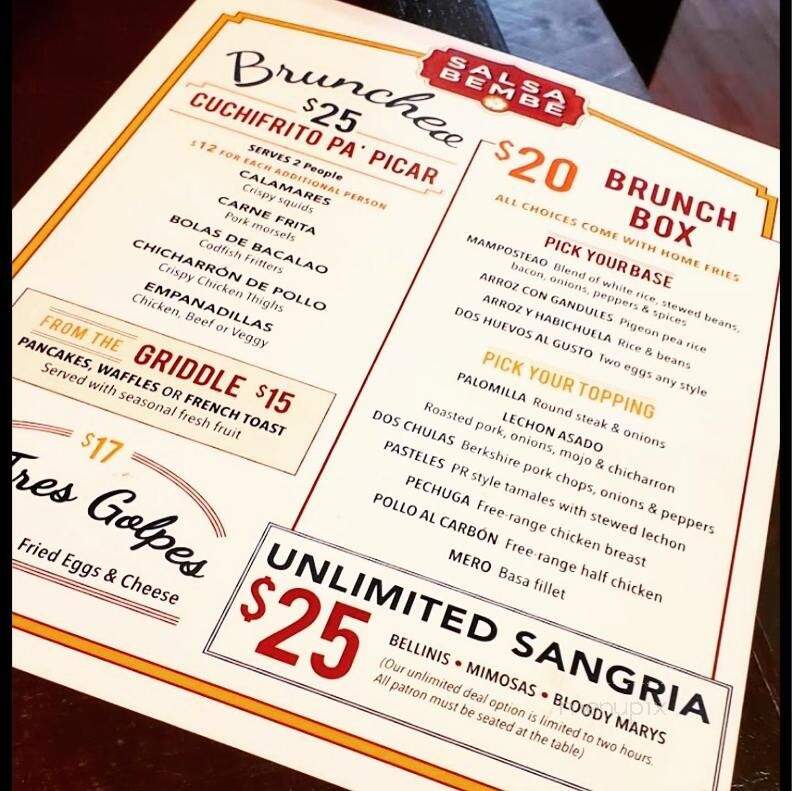 SALSA
BEMBE
Brunchea
$25
CUCHIFRITO PA' PICAR
SERVES 2 People
$12 FOR EACH ADDITIONAL PERSON
CALAMARES
Crispy squids
CARNE FRITA
Pork morsels
BOLAS DE BACALAO
Codfish Fritters
CHICHARRÓN DE POLLO
Crispy Chicken Thighs
EMPANADILLAS
Chicken, Beef or Veggy
FROM THE GRIDDLE $15
PANCAKES, WAFFLES OR FRENCH TOAST
Served with seasonal fresh fruit
$17
Tres Golpes
Fried Eggs & Cheese
$20 BRUNCH
BOX
ALL CHOICES COME WITH HOME FRIES
PICK YOUR BASE
MAMPOSTEAO Blend of white rice, stewed beans,
bacon, onions, peppers & spices
ARROZ CON GANDULES Pigeon pea rice
ARROZ Y HABICHUELA Rice & beans
DOS HUEVOS AL GUSTO Two eggs any style
PICK YOUR TOPPING
PALOMILLA Round steak & onions
LECHON ASADO
Roasted pork, onions, mojo & chicharron
DOS CHULAS Berkshire pork chops, onions & peppers
PASTELES PR style tamales with stewed lechon
PECHUGA Free-range chicken breast
POLLO AL CARBÓN Free-range half chicken
MERO Basa fillet
UNLIMITED SANGRIA
$25
BELLINIS • MIMOSAS • BLOODY MARYS
(Our unlimited deal option is limited to two hours.
All patron must be seated at the table)
menupix